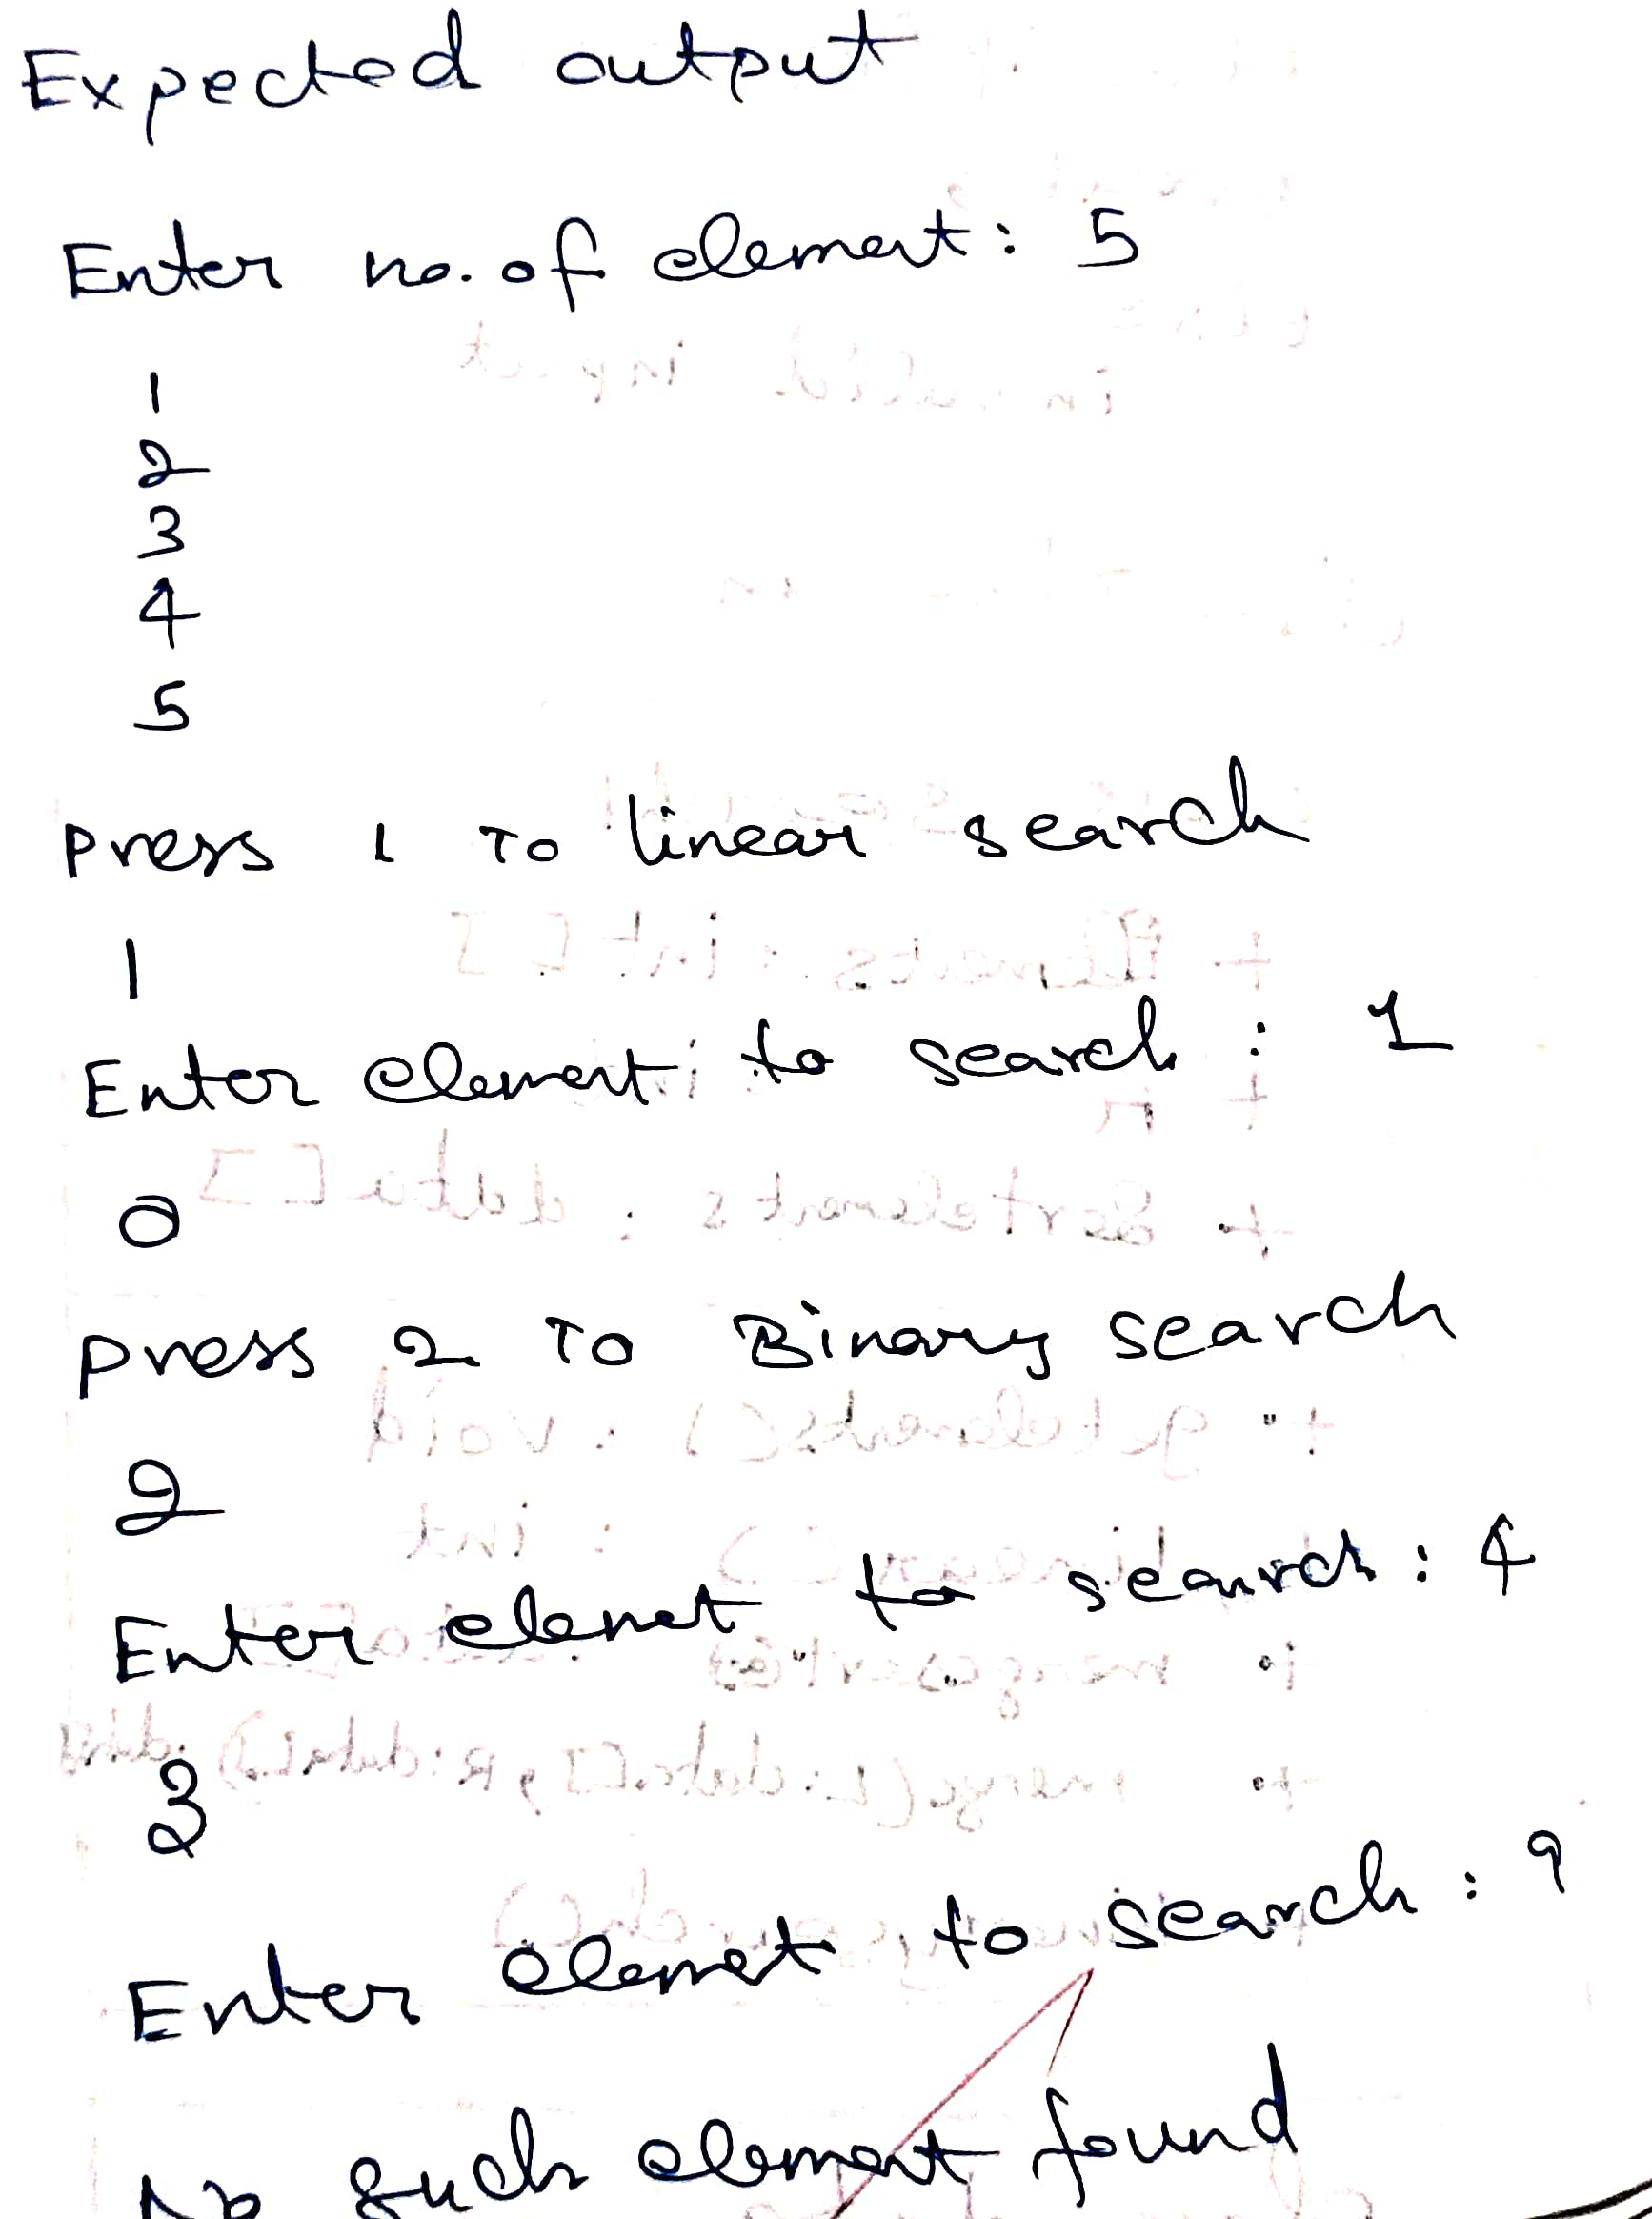 Expected output
Enter no. of element: 5
1
2
3
4
5
press 1 To linear search
1
Enter element to search : 1
0
press 2 To Binary search
2
Enter elemet to search : 4
3
Enter elemet to search : 9
No such element found